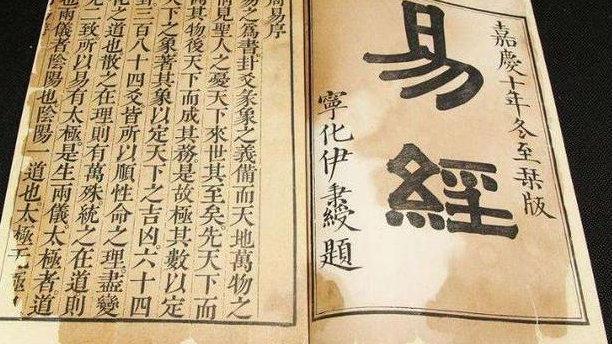 嘉慶十年冬至栞版
易經
寧化伊秉綬題
周易序
易之爲書卦爻彖象之義備而天地萬物之
情見聖人之憂天下來世其至矣。先天下而
開其物後天下而成其務是故極其數以定
天下之象著其象以定天下之吉凶。六十四
卦三百八十四爻皆所以順性命之理盡變
化之道也散之在理則有萬殊統之在道則
无二致所以易有太極是生兩儀。太極者道
也兩儀者陰陽也陰陽一道也太極无極